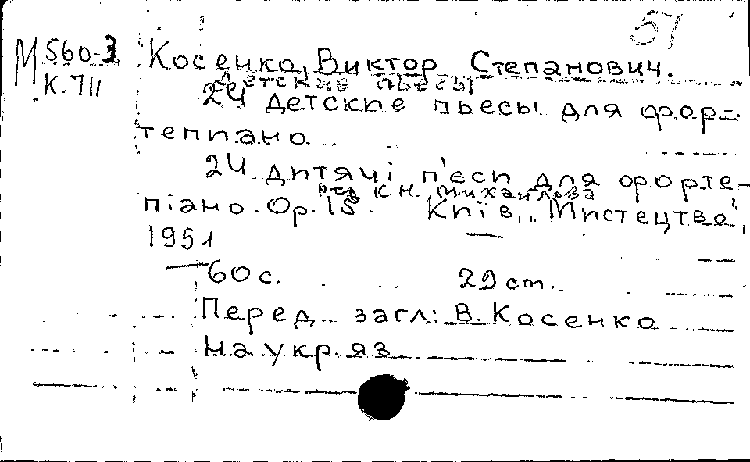 51
М 560-3 Косенко, Виктор Степанович.
К.711 Детские пьесы
24 детские пьесы для фор-
тепиано
24 дитячі п'єси для форте-
ред. К Н. Михайлова
піано. Ор. 15. Київ, „Мистецтво",
1951
60 с. 29 cm.
Перед загл: В. Косенко
На укр. яз